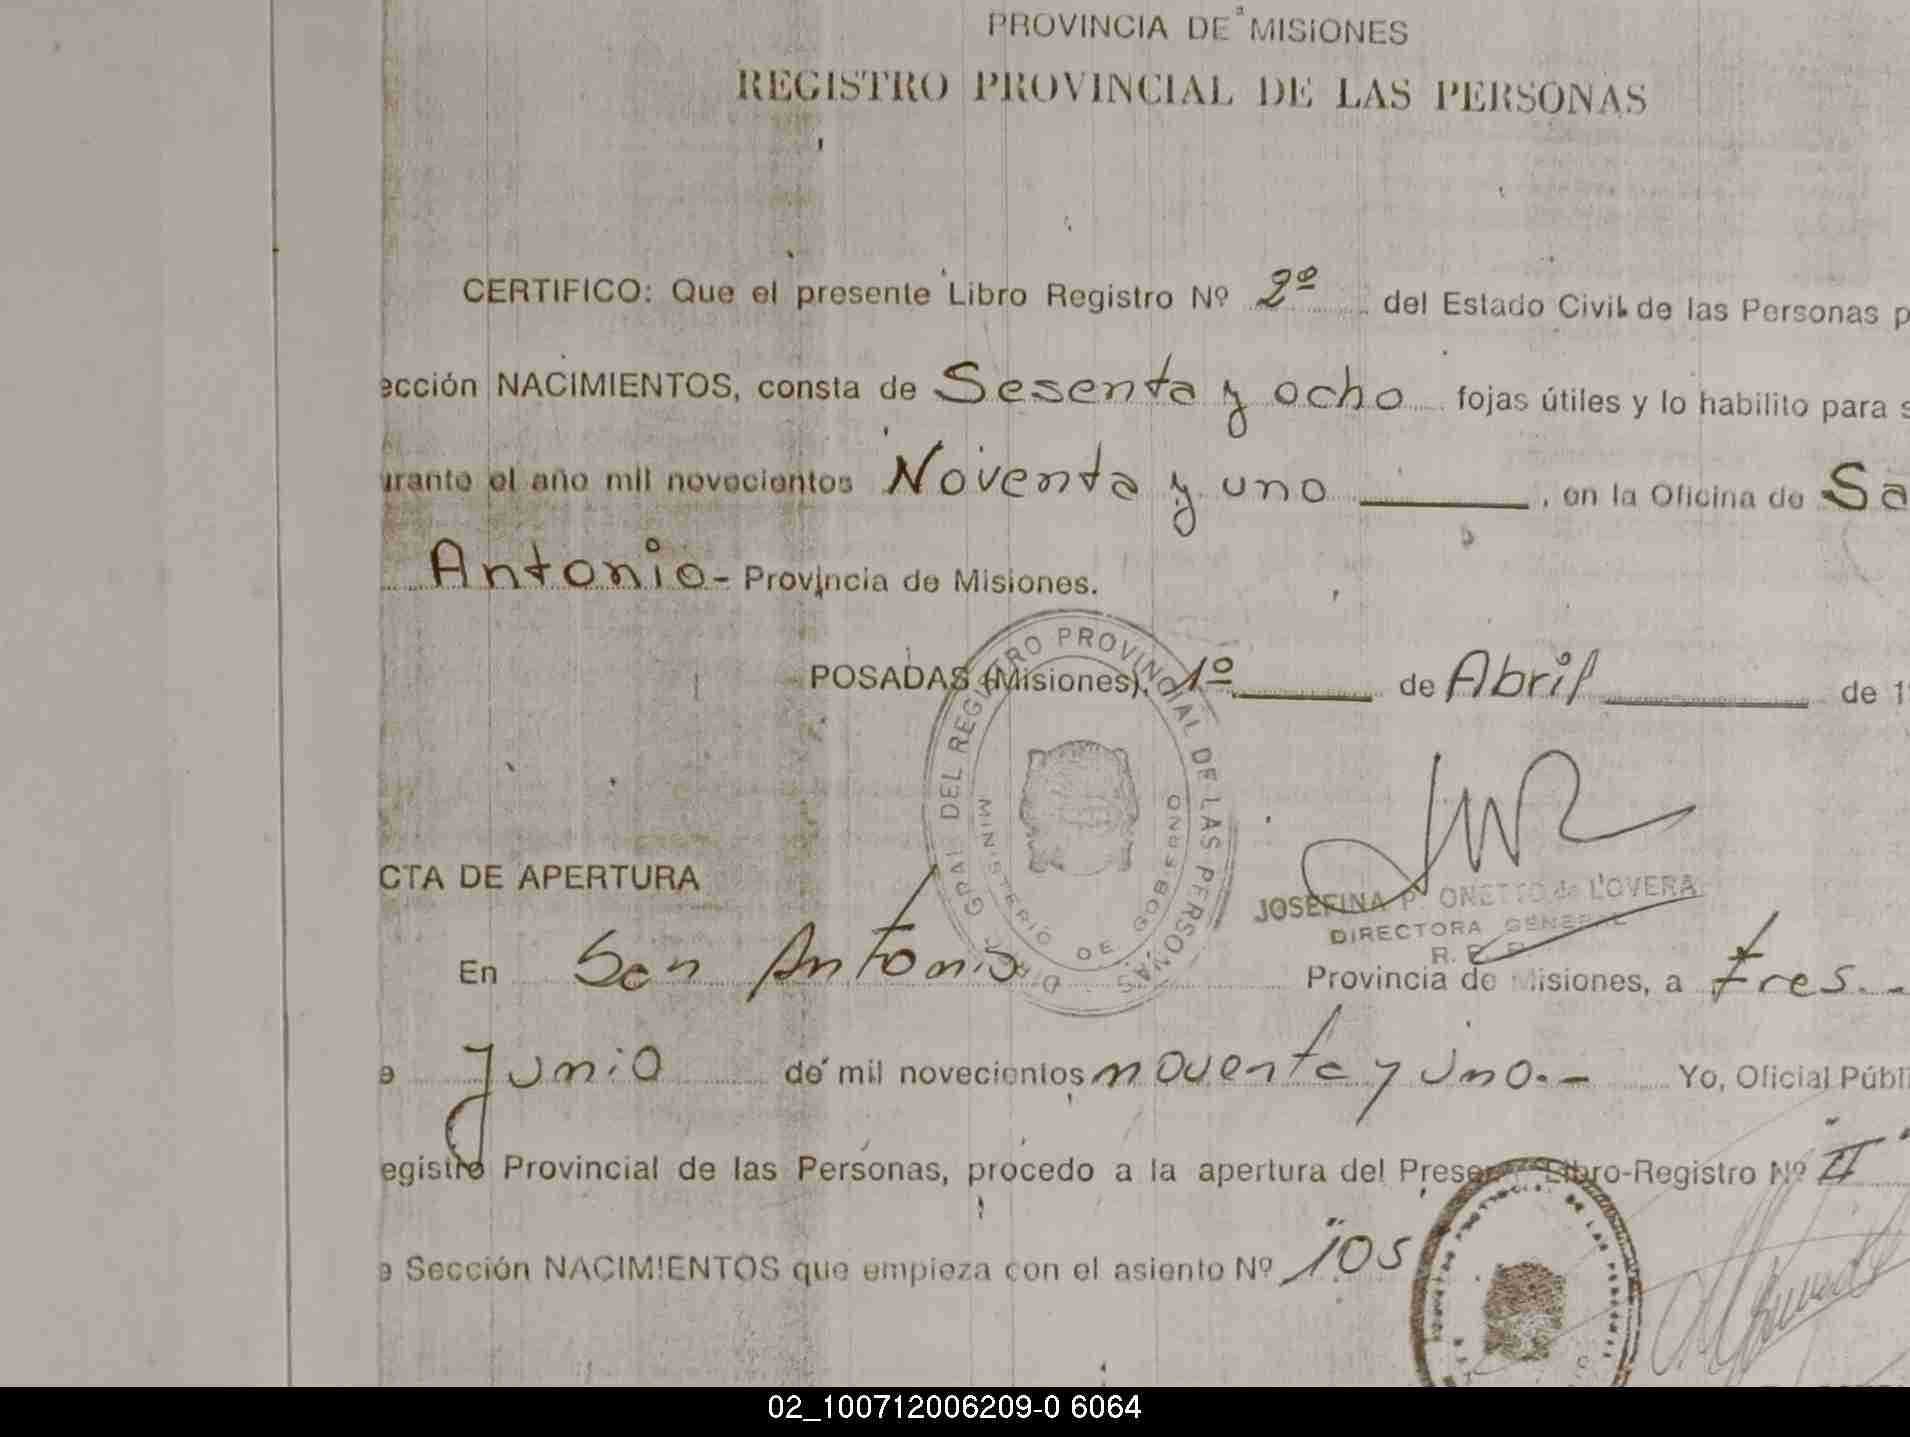 PROVINCIA DE MISIONES
REGISTRO PROVINCIAL DE LAS PERSONAS
CERTIFICO: Que el presente Libro Registro Nº 2º del Estado Civil de las Personas p
ección NACIMIENTOS, consta de Sesenta y ocho fojas útiles y lo habilito para s
urante el año mil novecientos Noventa y uno , en la Oficina de Sa
Antonio- Provincia de Misiones.
POSADAS (Misiones), 1º de Abril de 1
DIR. GRAL DEL REGISTRO PROVINCIAL DE LAS PERSONAS
MINISTERIO DE GOBIERNO
JOSEFINA P. ONETTO de LOVERA
DIRECTORA GENERAL
R. P.
CTA DE APERTURA
En San Antonio Provincia de Misiones, a tres.-
e Junio de mil novecientos noventa y uno.- Yo, Oficial Públi
egistro Provincial de las Personas, procedo a la apertura del Presen Libro-Registro Nº "II"
e Sección NACIMIENTOS que empieza con el asiento Nº 105
DE LAS PERSONAS
02_100712006209-0 6064